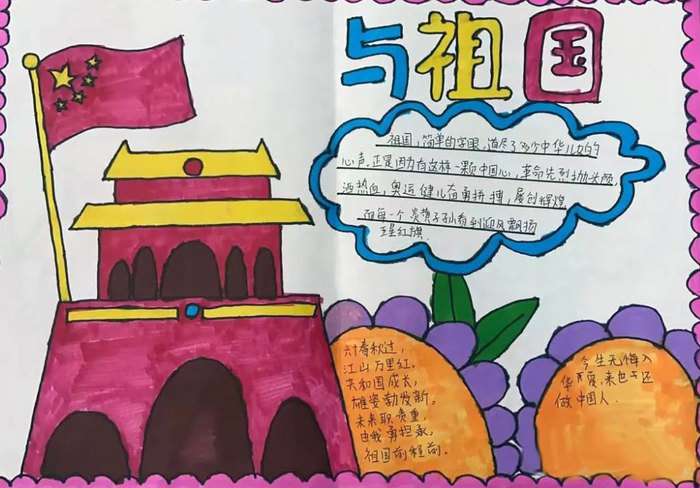 与祖国
祖国，简单的字眼，道尽了万个中华儿女的
心声。正是因为有这样一颗中国心，革命先烈抛头颅
洒热血，奥运健儿奋勇拼搏，屡创辉煌
而每一个炎黄子孙看到迎风飘扬
五星红旗.
六十春秋过，
江山万里红。
共和国成长，
雄姿勃发新。
未来职责重，
由我勇担承，
祖国前程前。
今生无悔入
华夏，来世还
做中国人.